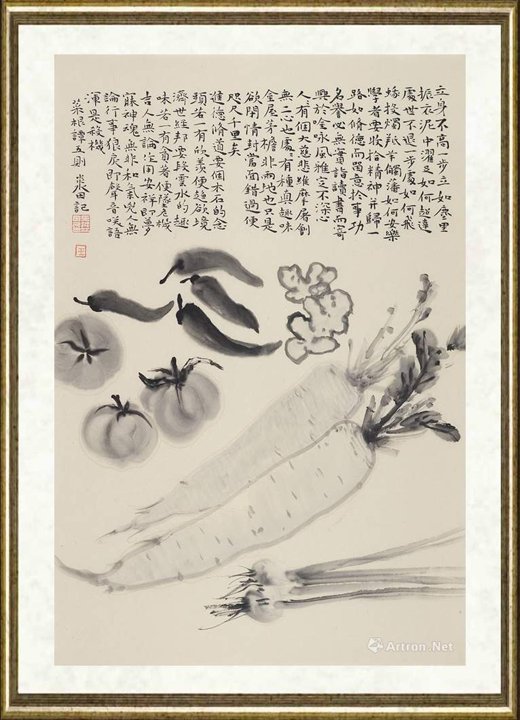 立身不高一步立如塵里
振衣泥中濯足如何超達
處世不退一步處如何飛
蛾投燭羝羊觸藩如何安樂
學者要收拾精神并歸一
路如修德而留意於事功
名譽必無實詣讀書而寄
興於吟咏風雅定不深心
人有個大慈悲維摩屠劊
無二心也處有種真趣味
金屋茅檐非兩地也只是
欲閉情封當面錯過便
咫尺千里矣
進德修道要個木石的念
頭若一有欣羨便趨欲境
濟世經邦要段雲水的趣
味若一有貪著便墮危機
吉人無論作用安祥即夢
寐神魂無非和氣凶人無
論行事狼戾即聲音咲語
渾是殺機
菜根譚五則 田記
Artron.Net